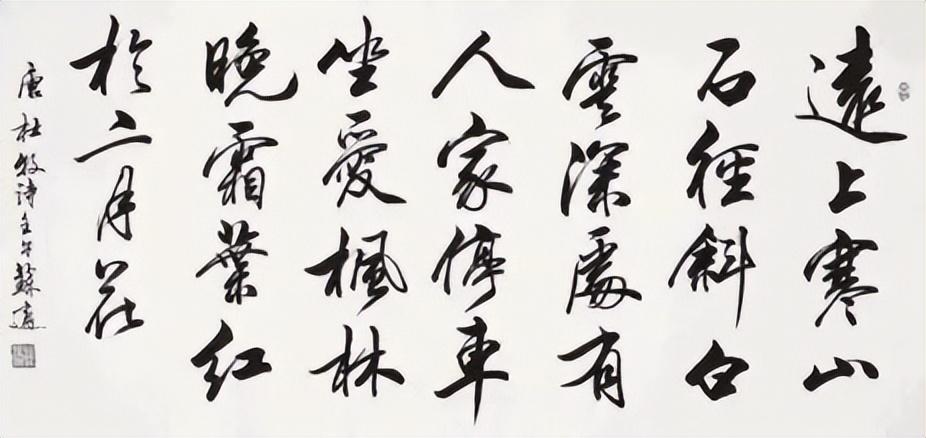 遠上寒山
石徑斜白
雲深處有
人家停車
坐愛楓林
晚霜葉红
於二月花
唐杜牧诗壬午蘇